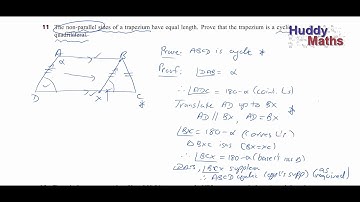 11 The non-parallel sides of a trapezium have equal length. Prove that the trapezium is a cyclic
quadrilateral.
Huddy
Maths
A B
α
D X C
Prove: ABCD is cyclic
Proof: ∠DAB = α
∴ ∠ADC = 180-α (coint. ∠s)
Translate AD up to BX
AD ∥ BX, AD = BX
180-α (corres ∠'s)
Δ BXC isos (BX=XC)
∴ ∠BCX = 180-α (base ∠'s isos Δ)
∴ ABCD cyclic (opp ∠'s supp) required)